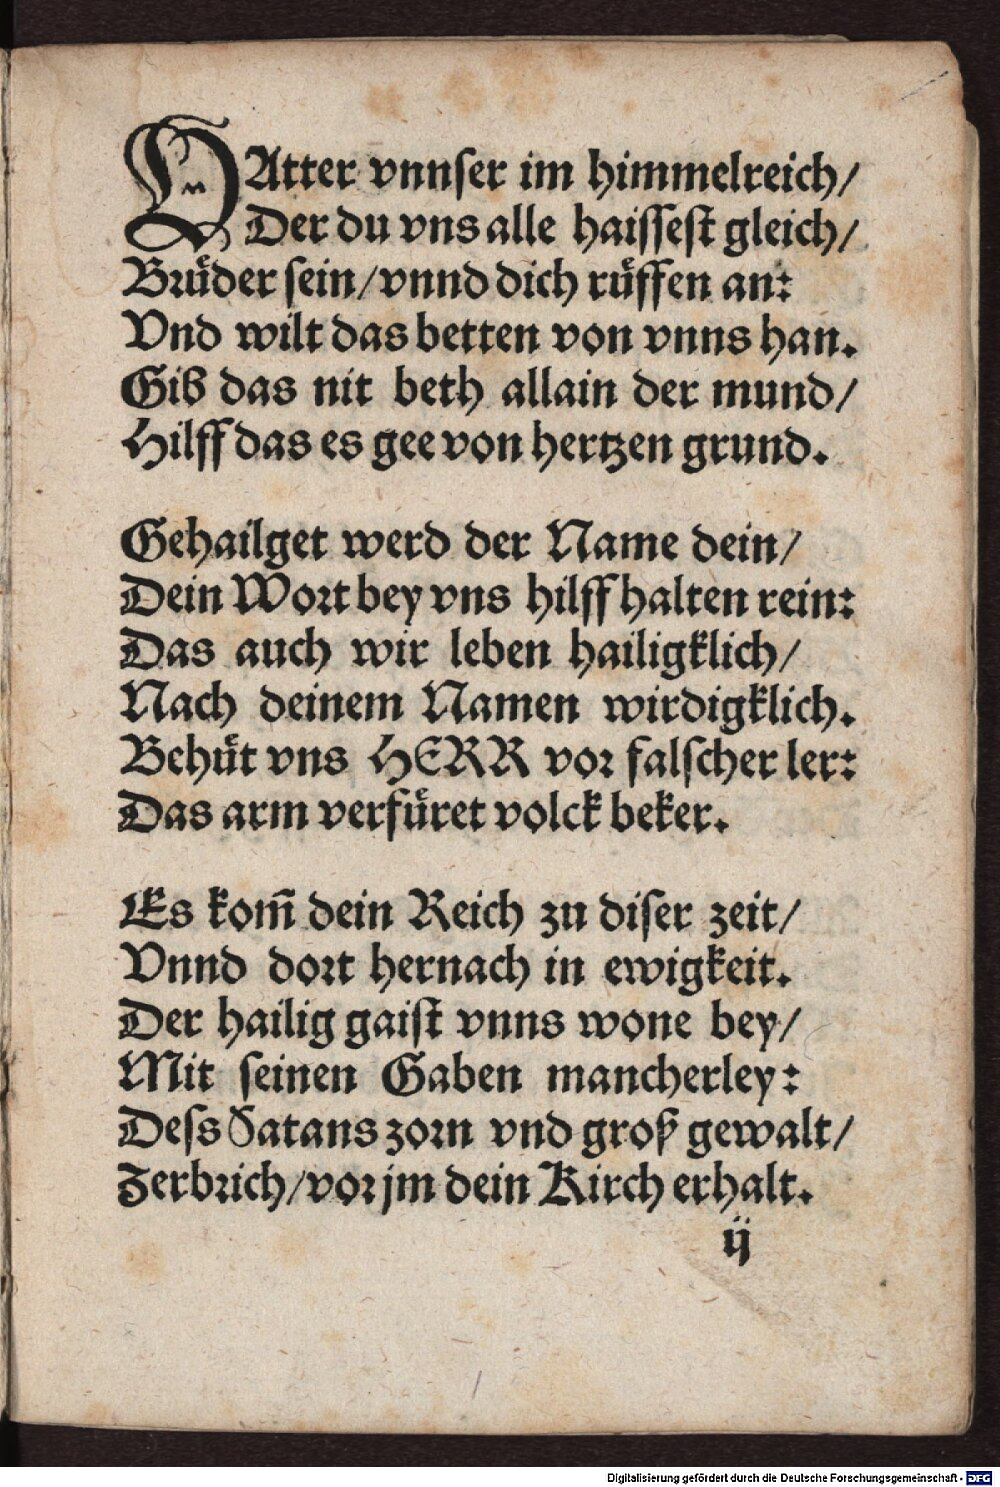 VAtter vnnser im himmelreich/
Der du vns alle haissest gleich/
Bruͤder sein/vnnd dich ruͤffen an:
Vnd wilt das betten von vnns han.
Gib das nit beth allain der mund/
Hilff das es gee von hertzen grund.

Gehailget werd der Name dein/
Dein Wort bey vns hilff halten rein:
Das auch wir leben hailigklich/
Nach deinem Namen wirdigklich.
Behuͤt vns HERR vor falscher ler:
Das arm verfuͤret volck beker.

Es kom̃ dein Reich zu diser zeit/
Vnnd dort hernach in ewigkeit.
Der hailig gaist vnns wone bey/
Mit seinen Gaben mancherley:
Dess Satans zorn vnd groß gewalt/
Zerbrich/vor jm dein Kirch erhalt.
ij
Digitalisierung gefördert durch die Deutsche Forschungsgemeinschaft - DFG